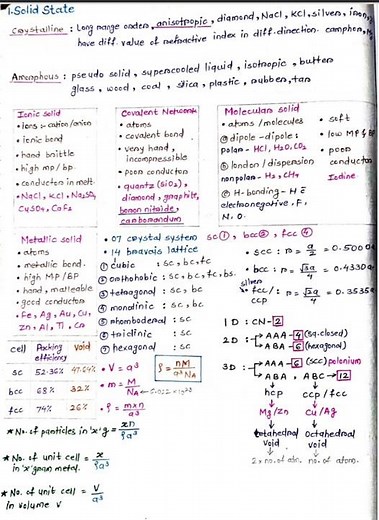 1. Solid State
Crystalline : Long range order, anisotropic, diamond, NaCl, KCl, silver, iron
have diff. value of refractive index in diff. direction. camphor,
Amorphous : pseudo solid, supercooled liquid, isotropic, butter
glass, wood, coal, silica, plastic, rubber, tar
Ionic solid
• ions :- cation/anion
• ionic bond
• hard brittle
• high mp/bp
• conductor in melt
• NaCl, KCl, Na2SO4
CuSO4, CaF2
Covalent Network
• atoms
• covalent bond
• very hard,
incompressible
• poor conductor
• quartz (SiO2),
diamond, graphite,
boron nitride,
carborundum
Molecular solid
• atoms/molecules
① dipole-dipole:
polar - HCl, H2O, CO2
② london/dispersion
nonpolar - H2, CH4
③ H-bonding - H &
electronegative F,
N, O.
• soft
• low MP & BP
• poor
conductor
Iodine
Metallic solid
• atoms
• metallic bond
• high MP/BP
• hard, malleable
• good conductor
• Fe, Ag, Au, Cu,
Zn, Al, Ti, Co
• 07 crystal system
• 14 bravais lattice
① cubic : sc, bc, fc
② orthorhobic : sc, bc, fc, bs.
③ tetragonal : sc, bc
④ monolinic : sc, bc
⑤ rhombohedral : sc
⑥ triclinic : sc
⑦ hexagonal : sc
sc①, bcc②, fcc④
• scc : r = a/2 = 0.500a
• bcc : r = √3a/4 = 0.4330a
silver
• fcc/ : r = √2a/4 = 0.3535a
ccp
cell Packing efficiency void
sc 52.36% 47.64%
bcc 68% 32%
fcc 74% 26%
• V = a³
• m = M/NA
• ρ = m×n/a³
ρ = nM/a³NA
1D : CN - 2
2D : AAA - 4 (sq. closed)
ABA - 6 (hexagonal)
3D : AAA - 6 (scc) polonium
ABA, ABC → 12
hcp ccp/fcc
Mg/Zn Cu/Ag
tetrahedral void Octahedral void
2× no. of atm. no. of atom.
★ No. of particles in 'x' g = xn/ρa³
★ No. of unit cell = x/ρa³
in 'x' gram metal.
★ No. of unit cell = V/a³
in volume V